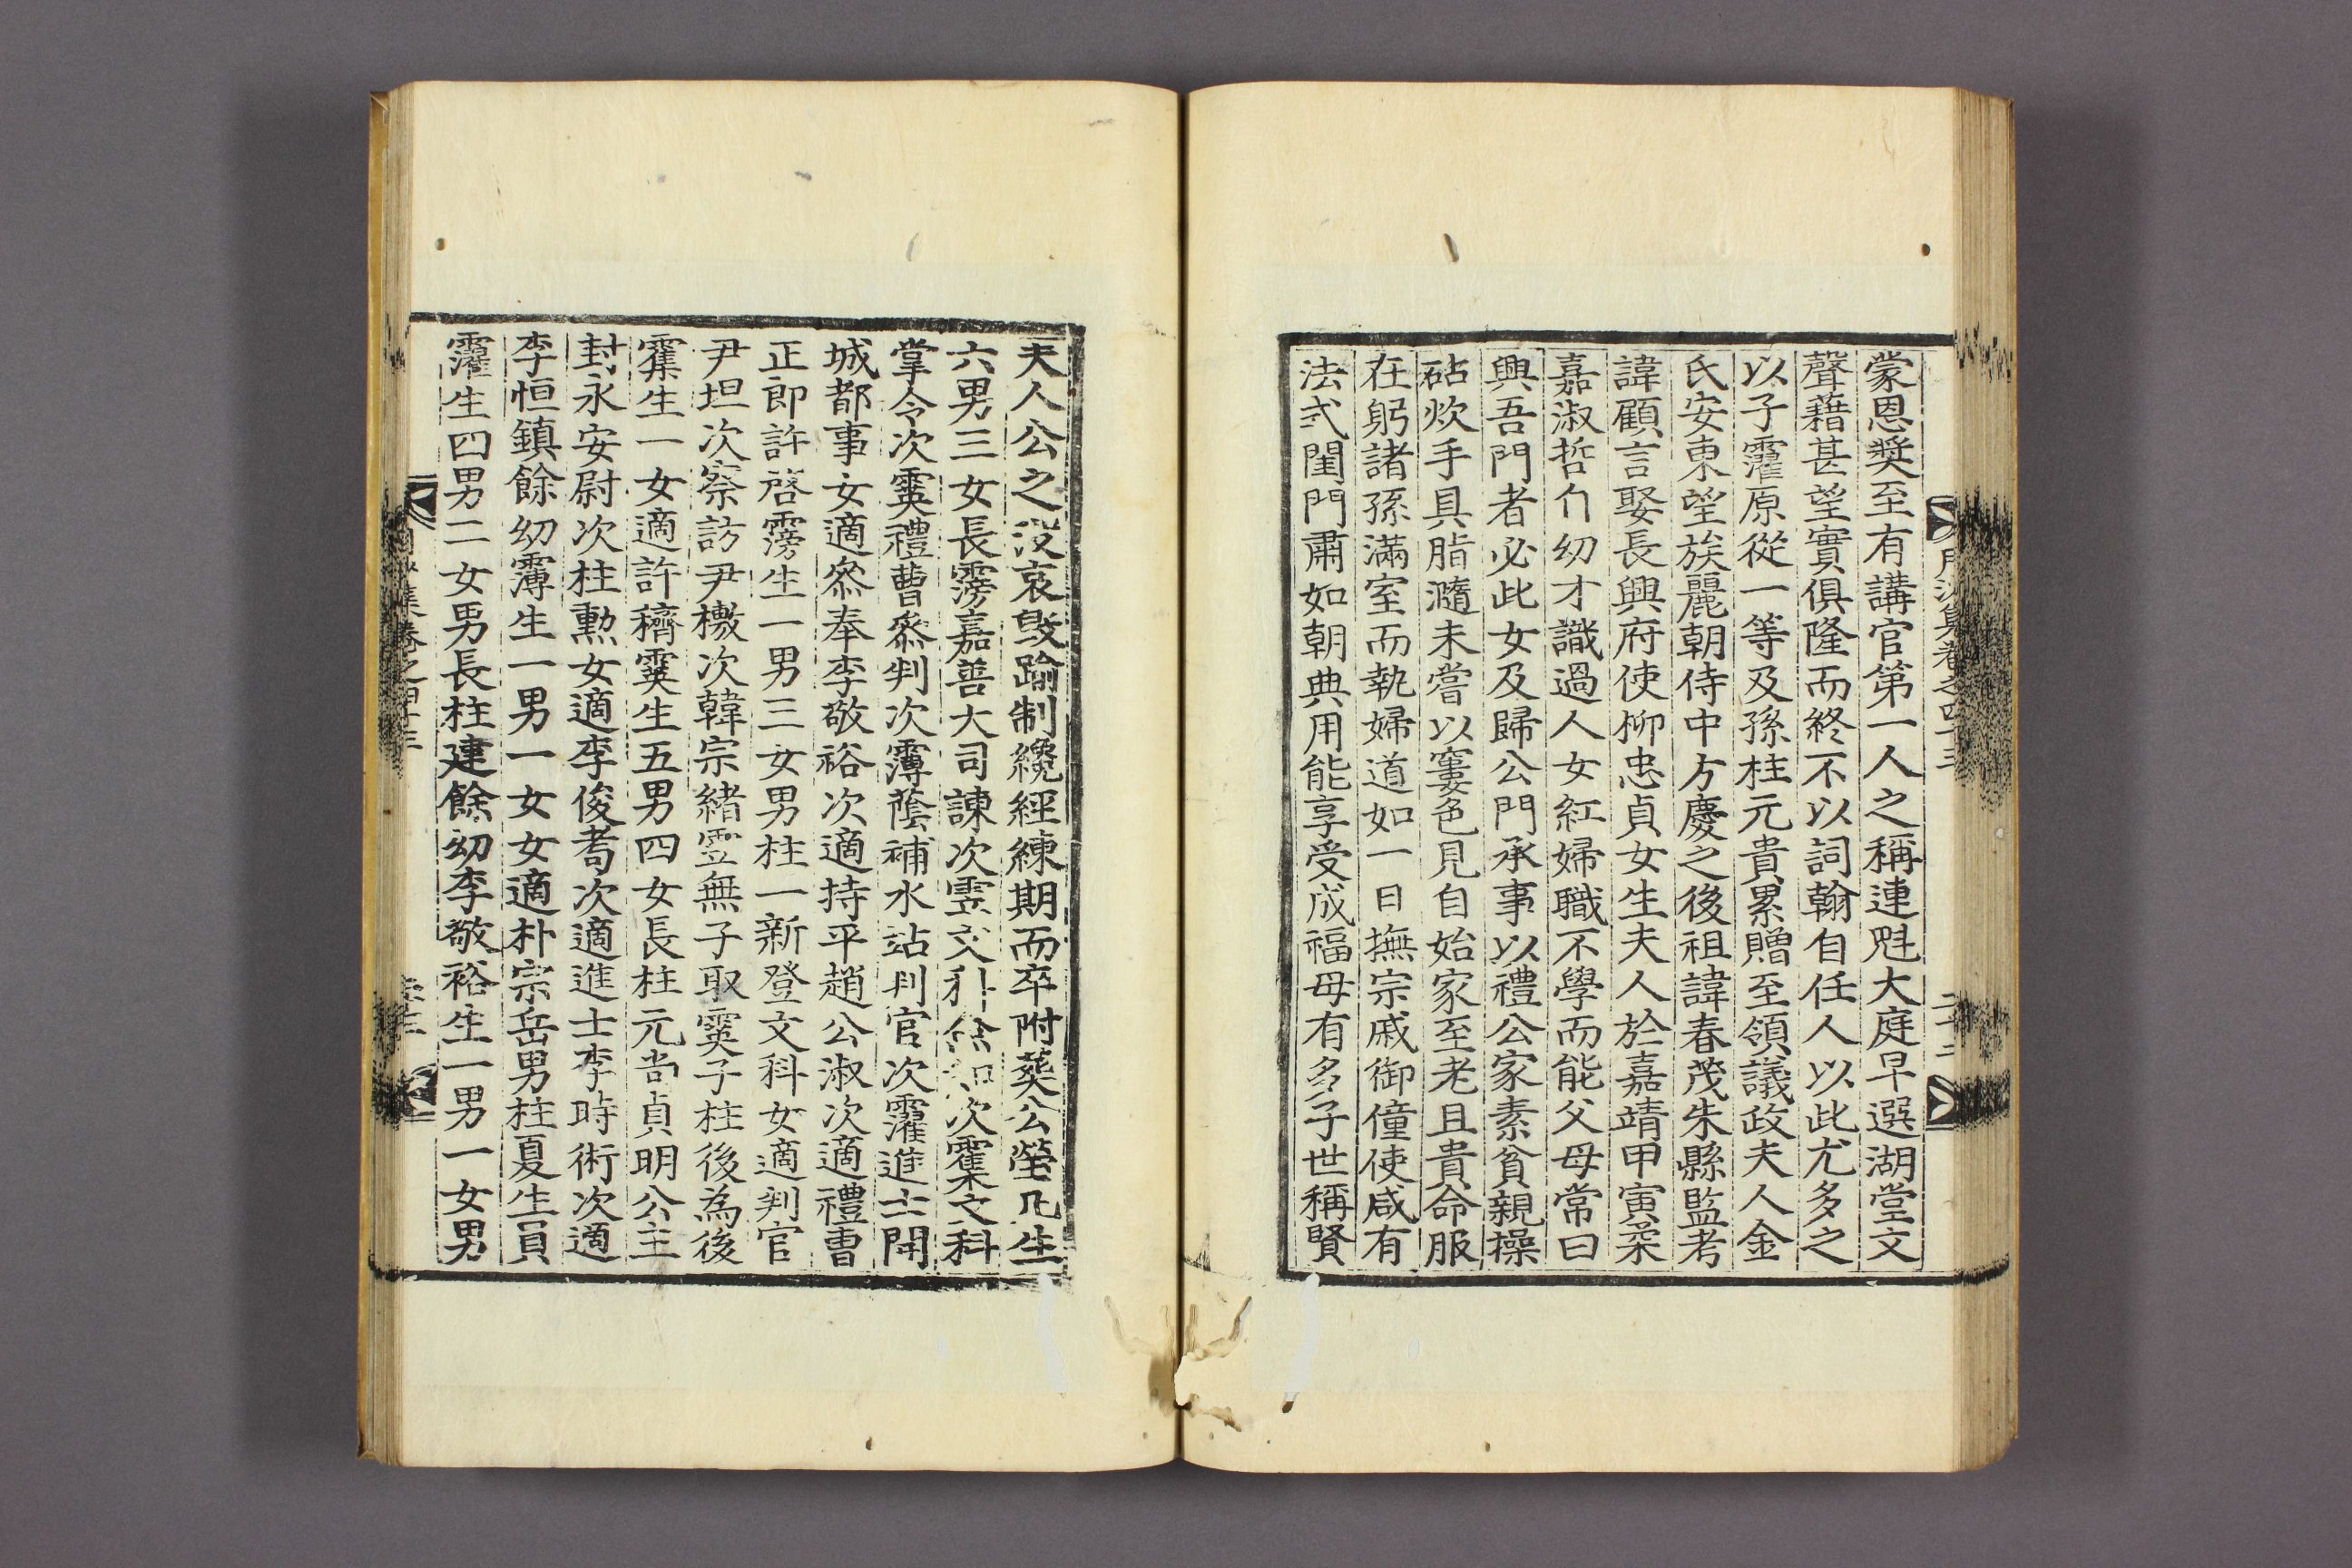 蒙恩奬至有講官第一人之稱連魁大庭早選湖堂文
聲藉甚望實俱隆而終不以詞翰自任人以此尤多之
以子靃原從一等及孫柱元貴累贈至領議政夫人金
氏安東望族麗朝侍中方慶之後祖諱春茂朱縣監考
諱顧言娶長興府使柳忠貞女生夫人於嘉靖甲寅柔
嘉淑哲自幼才識過人女紅婦職不學而能父母常曰
興吾門者必此女及歸公門承事以禮公家素貧親操
砧炊手具脂瀡未嘗以窶色見自始家至老且貴命服
在躬諸孫滿室而執婦道如一日撫宗戚御僮使咸有
法式閨門肅如朝典用能享受成福母有多子世稱賢
夫人公之沒哀毀踰制纔經練期而卒附葬公塋凡生
六男三女長霶嘉善大司諫次霊文科次靃文科
掌令次霙禮曹叅判次䨦蔭補水站判官次靃進士開
城都事女適叅奉李敬裕次適持平趙公淑次適禮曹
正郞許啓霶生一男三女男柱一新登文科女適判官
尹坦次察訪尹檄次韓宗緖霊無子取霙子柱後為後
靃生一女適許穧霙生五男四女長柱元尙貞明公主
封永安尉次柱勳女適李俊耉次適進士李時術次適
李恒鎮餘幼䨦生一男一女女適朴宗岳男柱夏生員
靃生四男二女男長柱建餘幼李敬裕生一男一女男